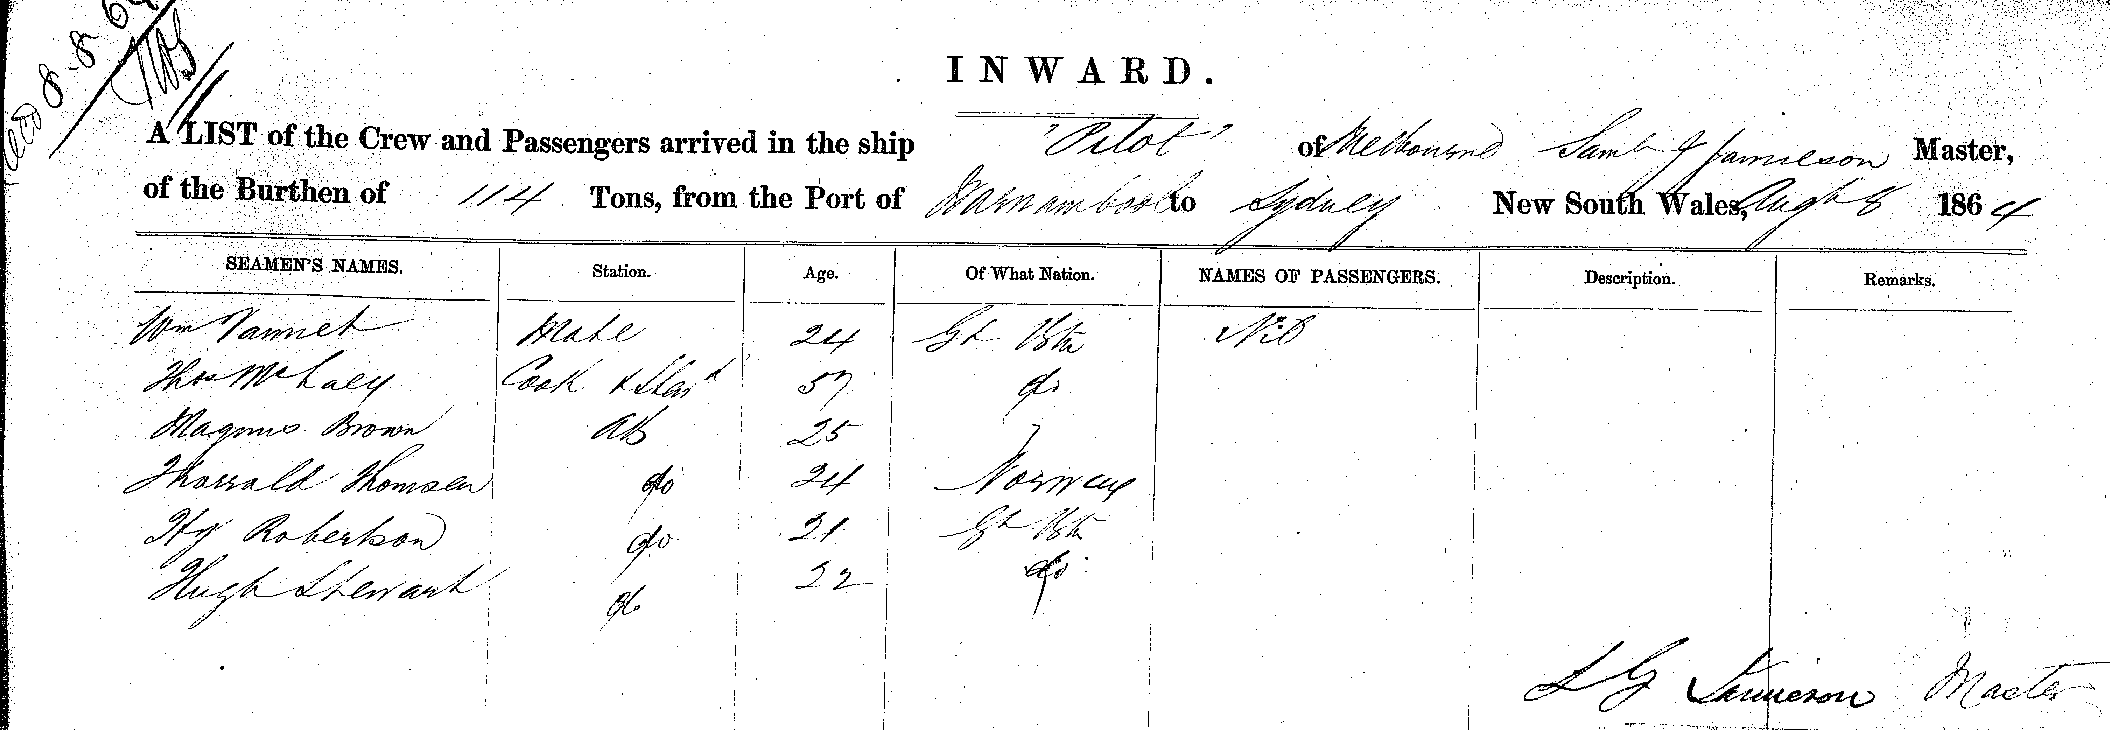 Recd 8-8-64
INWARD.
A LIST of the Crew and Passengers arrived in the ship "Pilot" of Melbourne Saml G Jamieson Master,
of the Burthen of 114 Tons, from the Port of Warnambool to Sydney New South Wales, Augt 8 1864
SEAMEN'S NAMES. Station. Age. Of What Nation. NAMES OF PASSENGERS. Description. Remarks.
Wm Mate 24 Gt Btn Nil
Thos Cook & Stewd 57 do
Magnus Brown AB 25 "
Thorvald Thomsen do 24 Norway
Hy Robertson do 21 Gt Btn
Hugh Stewart do 22 do
S G Jamieson Master